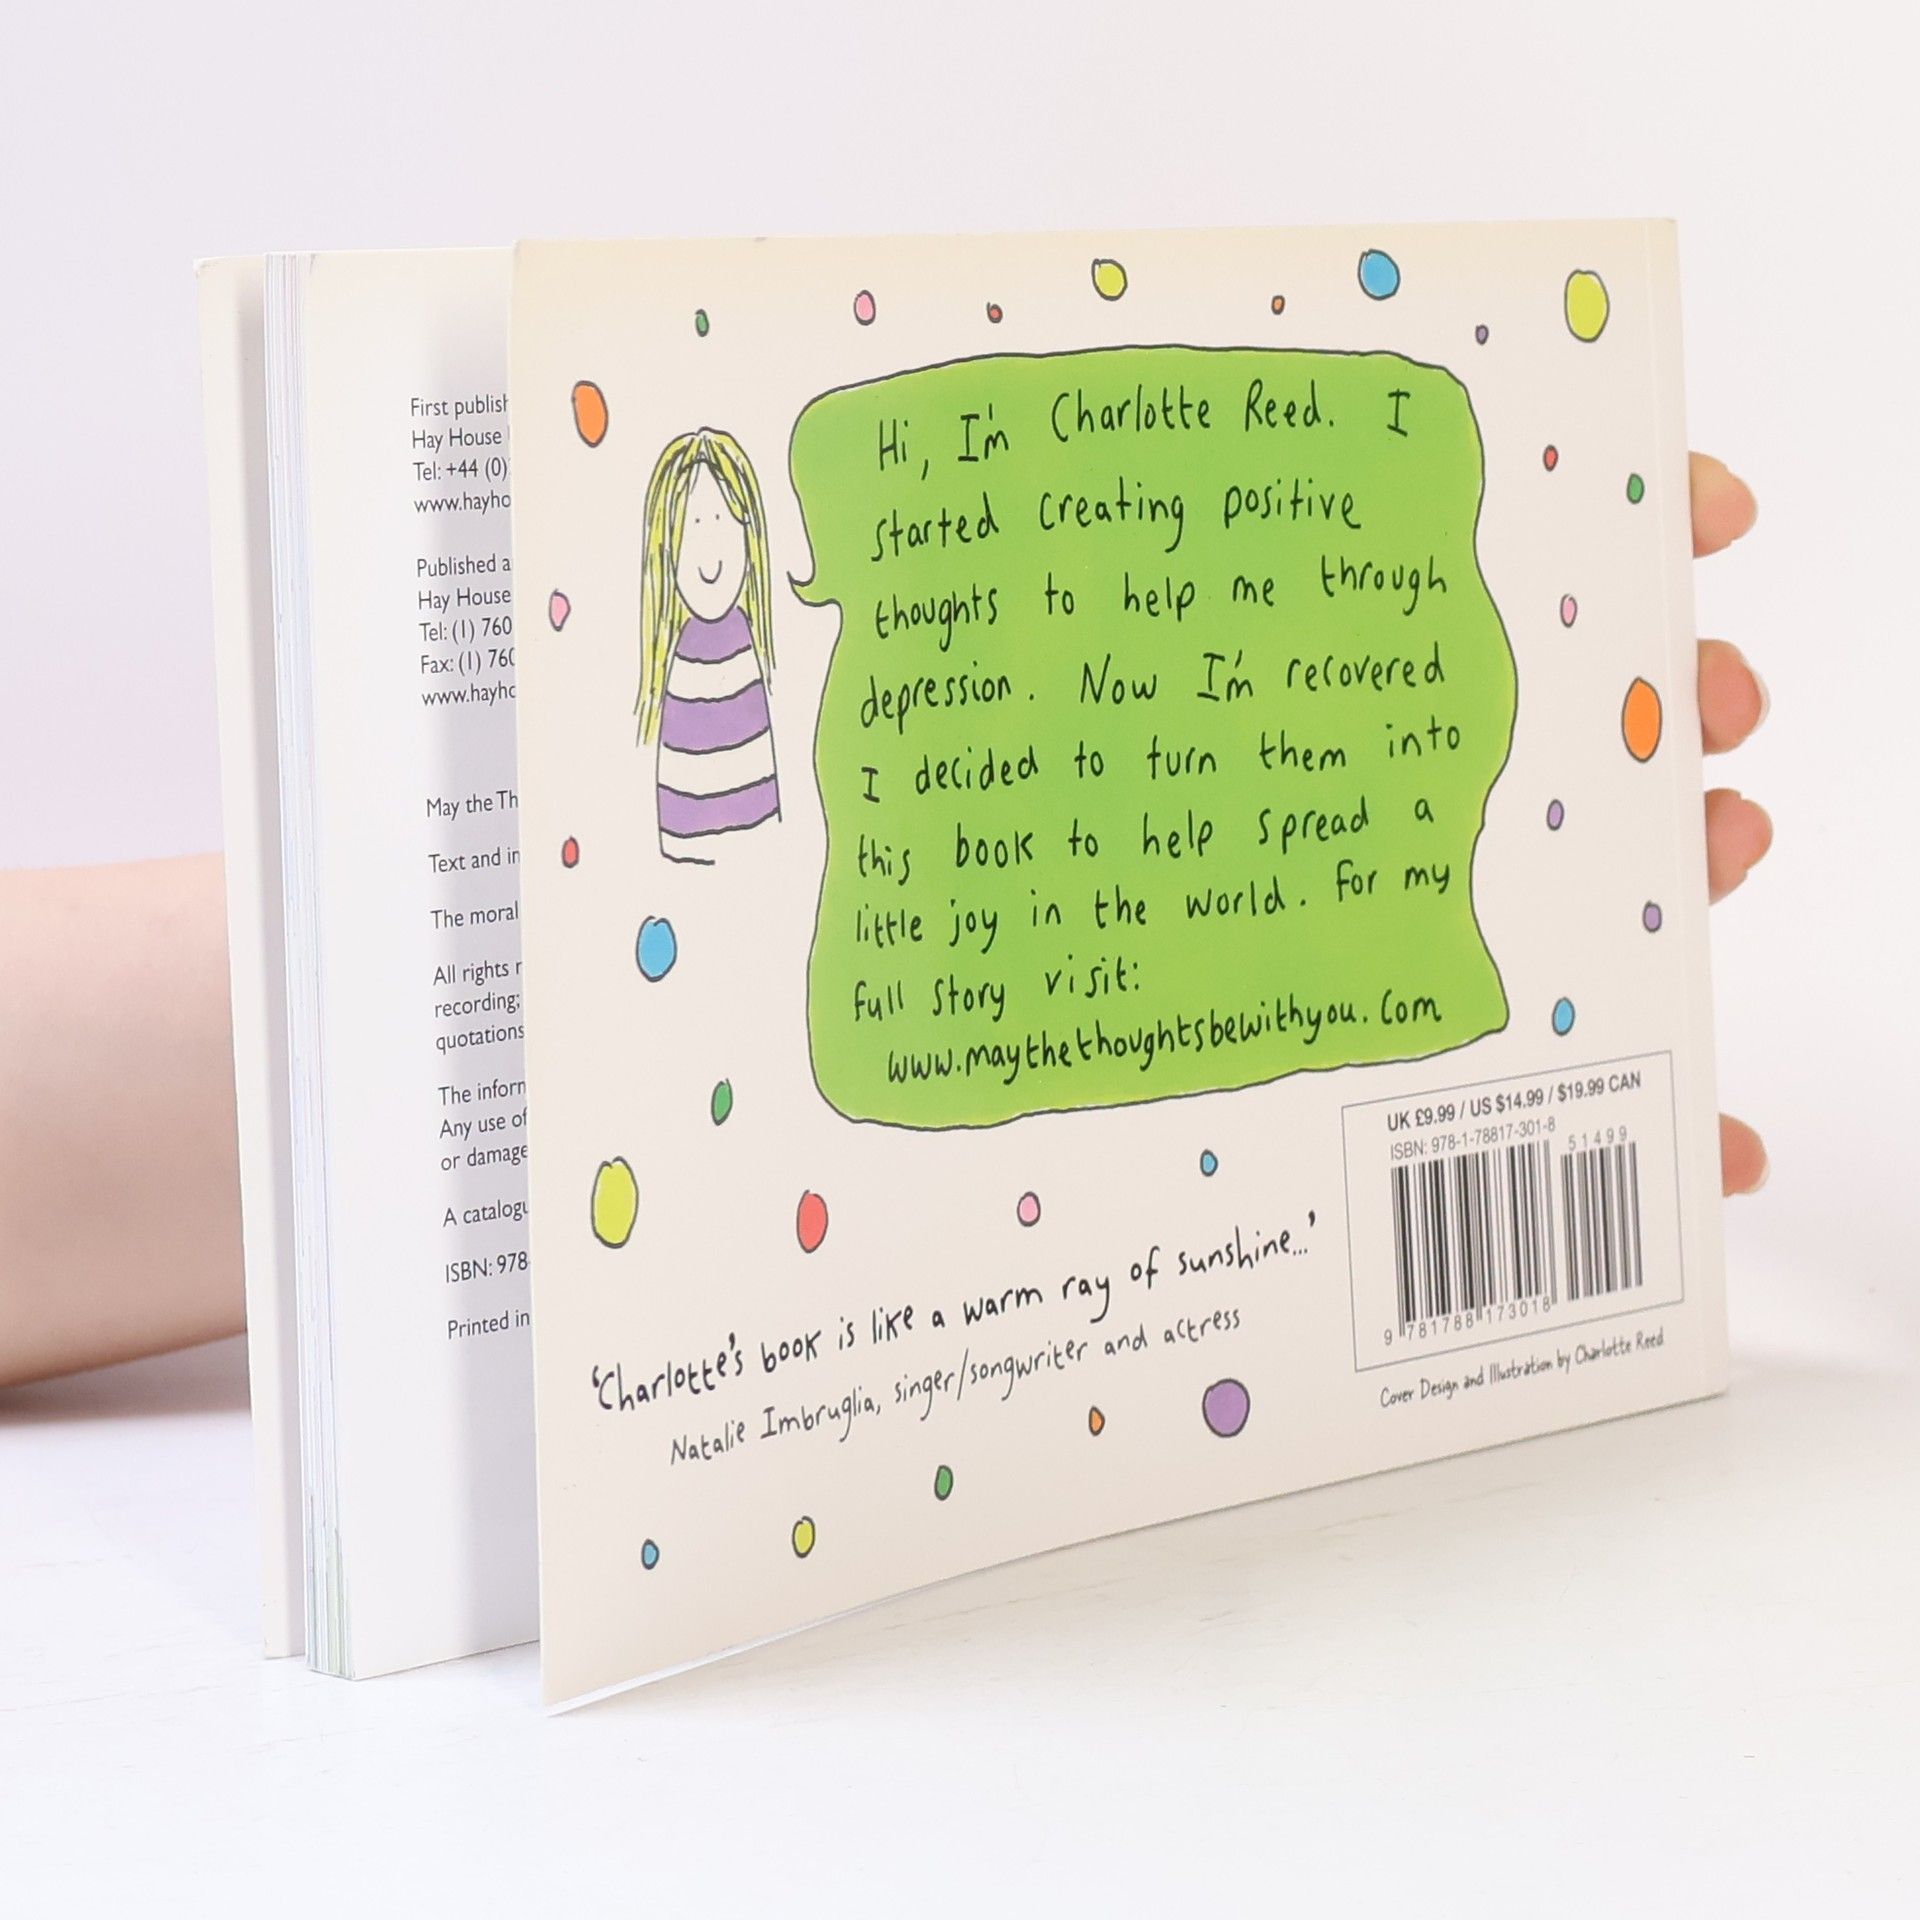 First publis
Hay House
Tel: +44 (0)
www.hayho
Published a
Hay House
Tel: (1) 760
Fax: (1) 760
www.hayho
May the Th
Text and in
The moral
All rights r
recording;
quotations
The inform
Any use of
or damage
A catalogu
ISBN: 978-
Printed in
Hi, I'm Charlotte Reed. I
started creating positive
thoughts to help me through
depression. Now I'm recovered
I decided to turn them into
this book to help spread a
little joy in the world. For my
full story visit:
www.maythethoughtsbewithyou.com
'Charlotte's book is like a warm ray of sunshine...'
Natalie Imbruglia, singer/songwriter and actress
UK £9.99 / US $14.99 / $19.99 CAN
ISBN: 978-1-78817-301-8
51499
9 781788 173018
Cover Design and Illustration by Charlotte Reed